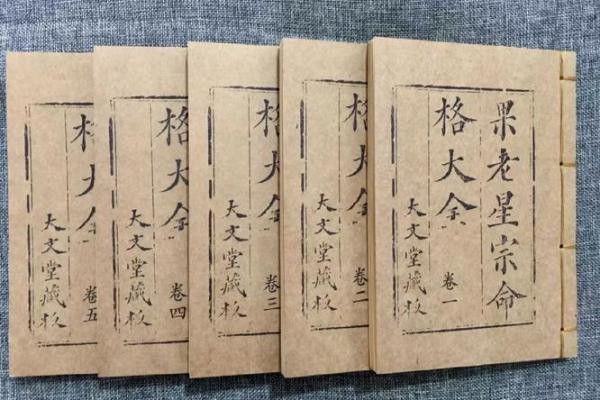 果老星宗命
格大全
卷一
大文堂藏板
格大全
卷二
大文堂藏板
格大全
卷三
大文堂藏板
格大全
卷四
大文堂藏板
格大全
卷五
大文堂藏板